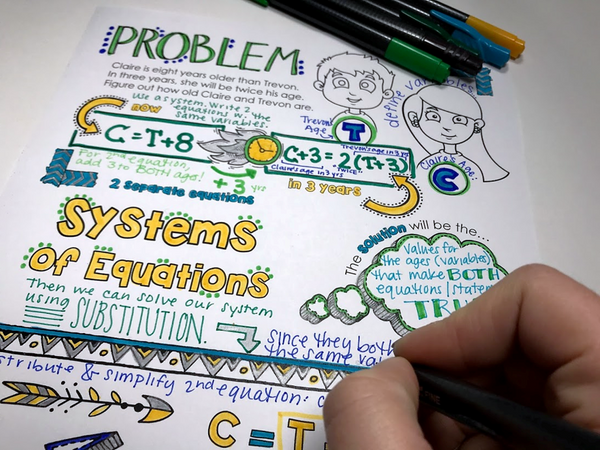 PROBLEM
Claire is eight years older than Trevon.
In three years, she will be twice his age.
Figure out how old Claire and Trevon are.
use a system. Write 2
equations w. the
same variables.
now
C=T+8
For 2nd equation,
add 3 to BOTH ages!
+3 yrs
2 separate equations
Trevon's age in 3 yrs
C+3=2(T+3)
Claire's age in 3 yrs
"TWICE"
in 3 years
Trevon's
Age
T
define variables
Claire's Age
C
Systems
of Equations
The solution will be the...
values for
the ages (variables)
that make BOTH
equations/statem
TRU
Then we can solve our system
using SUBSTITUTION.
since they both
the same va
stribute & simplify 2nd equation:
C = T